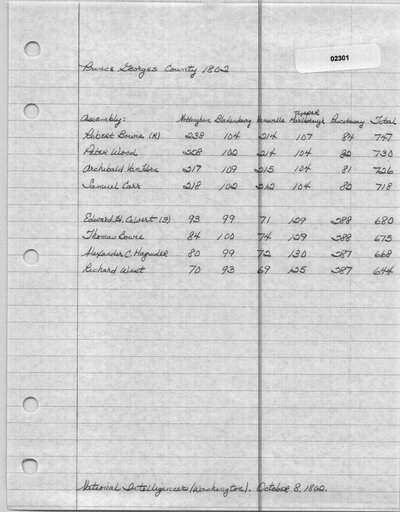 02301
Prince Georges County 1802
Upper
Assembly: Nottingham Bladensburg Vansville Marlborough Piscataway Total
Robert Bowie (R) 238 104 214 107 84 747
Peter Wood 228 102 214 104 82 730
Archibald Van Horn 217 109 215 104 81 726
Samuel Carr 218 102 212 104 82 718
Edward H. Calvert (F) 93 99 71 129 288 680
Thomas Bowie 84 100 74 129 288 675
Alexander C. Magruder 80 99 72 130 287 668
Richard West 70 93 69 125 287 644
National Intelligencer (Washington). October 8, 1802.